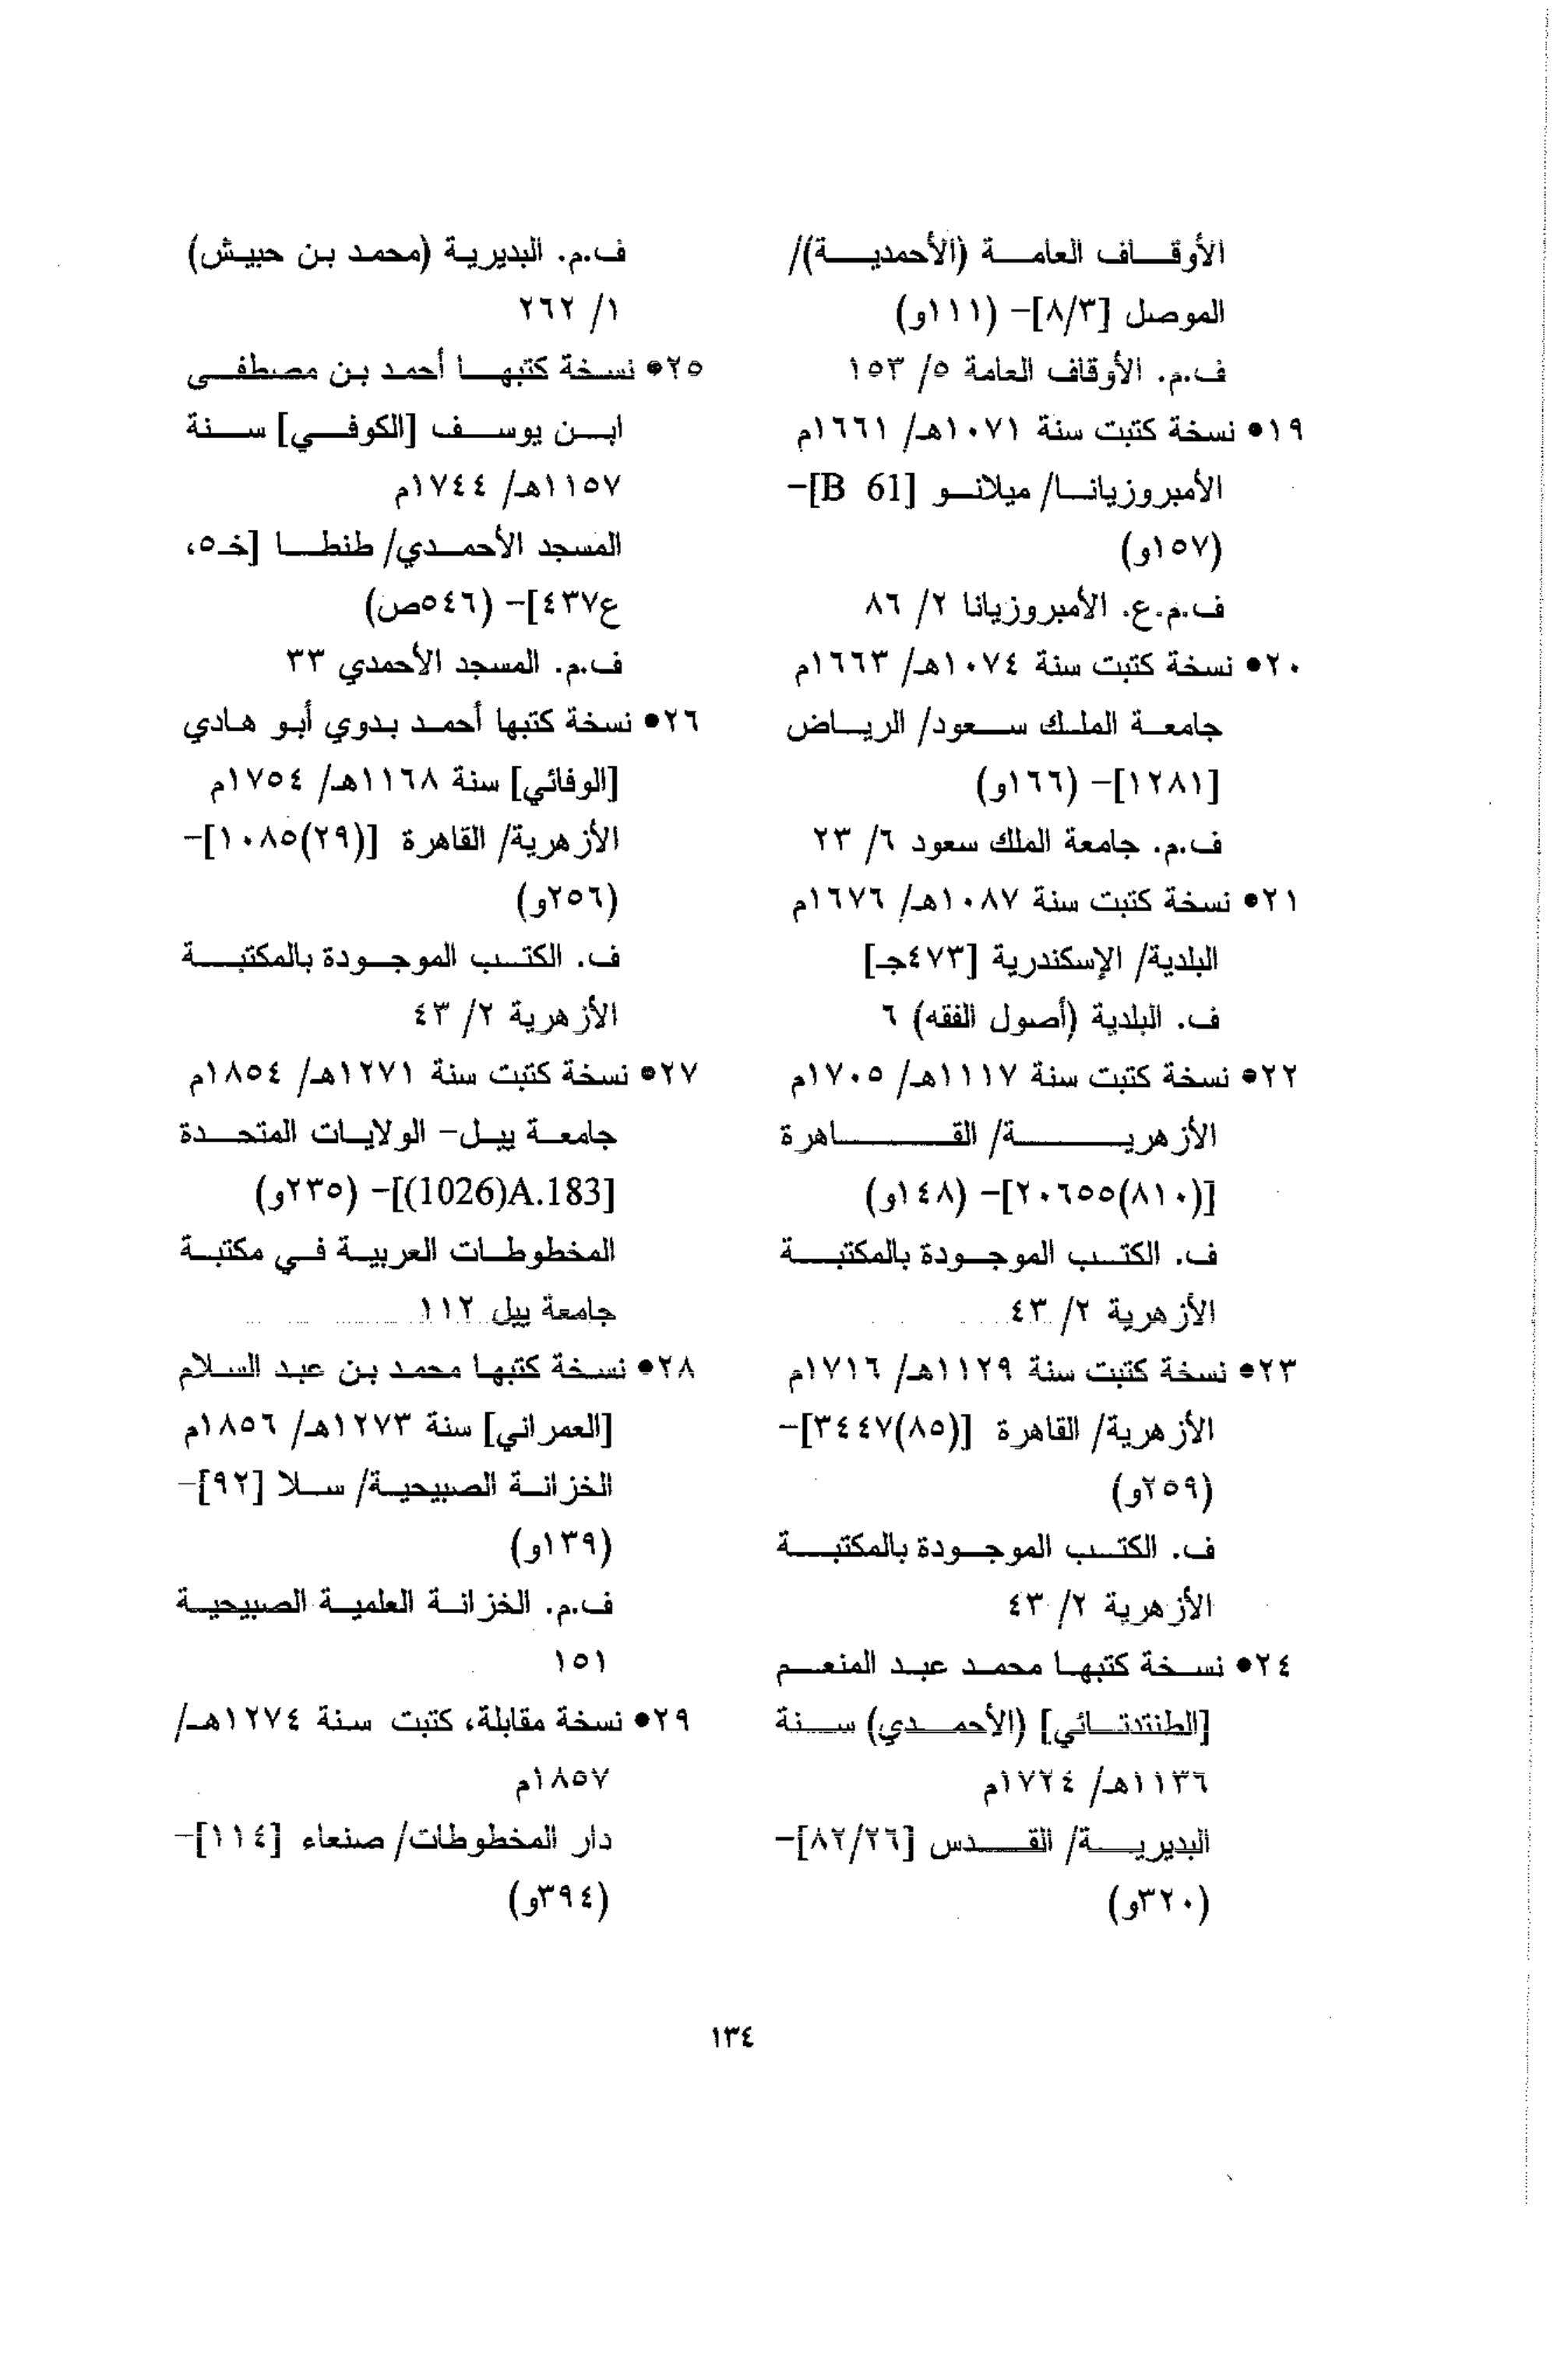 الأوقاف العامة (الأحمدية)/
الموصل [٨/٣]- (١١١و)
ف.م. الأوقاف العامة ٥/ ١٥٣
١٩● نسخة كتبت سنة ١٠٧١هـ/ ١٦٦١م
الأمبروزيانا/ ميلانو [B 61]-
(١٥٧و)
ف.م.ع. الأمبروزيانا ٢/ ٨٦
٢٠● نسخة كتبت سنة ١٠٧٤هـ/ ١٦٦٣م
جامعة الملك سعود/ الرياض
[١٢٨١]- (١٦٦و)
ف.م. جامعة الملك سعود ٦/ ٢٣
٢١● نسخة كتبت سنة ١٠٨٧هـ/ ١٦٧٦م
البلدية/ الإسكندرية [٤٧٣جـ]
ف. البلدية (أصول الفقه) ٦
٢٢● نسخة كتبت سنة ١١١٧هـ/ ١٧٠٥م
الأزهرية/ القاهرة
[(٨١٠)٢٠٦٥٥]- (١٤٨و)
ف. الكتب الموجودة بالمكتبة
الأزهرية ٢/ ٤٣
٢٣● نسخة كتبت سنة ١١٢٩هـ/ ١٧١٦م
الأزهرية/ القاهرة [(٨٥)٣٤٤٧]-
(٢٥٩و)
ف. الكتب الموجودة بالمكتبة
الأزهرية ٢/ ٤٣
٢٤● نسخة كتبها محمد عبد المنعم
[الطنتدتائي] (الأحمدي) سنة
١١٣٦هـ/ ١٧٢٤م
البديرية/ القدس [٨٢/٢٦]-
(٣٢٠و)
ف.م. البديرية (محمد بن حبيش)
١/ ٢٦٢
٢٥● نسخة كتبها أحمد بن مصطفى
ابن يوسف [الكوفي] سنة
١١٥٧هـ/ ١٧٤٤م
المسجد الأحمدي/ طنطا [خـ٥،
ع٤٣٧]- (٥٤٦ص)
ف.م. المسجد الأحمدي ٣٣
٢٦● نسخة كتبها أحمد بدوي أبو هادي
[الوفائي] سنة ١١٦٨هـ/ ١٧٥٤م
الأزهرية/ القاهرة [(٢٩)١٠٨٥]-
(٢٥٦و)
ف. الكتب الموجودة بالمكتبة
الأزهرية ٢/ ٤٣
٢٧● نسخة كتبت سنة ١٢٧١هـ/ ١٨٥٤م
جامعة ييل- الولايات المتحدة
[(1026)A.183]- (٢٣٥و)
المخطوطات العربية في مكتبة
جامعة ييل ١١٢
٢٨● نسخة كتبها محمد بن عبد السلام
[العمراني] سنة ١٢٧٣هـ/ ١٨٥٦م
الخزانة الصبيحية/ سلا [٩٢]-
(١٣٩و)
ف.م. الخزانة العلمية الصبيحية
١٥١
٢٩● نسخة مقابلة، كتبت سنة ١٢٧٤هـ/
١٨٥٧م
دار المخطوطات/ صنعاء [١١٤]-
(٣٩٤و)
١٣٤